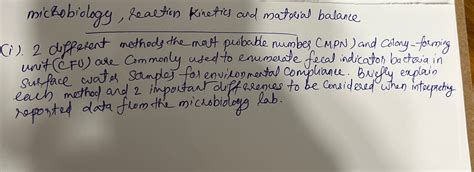 microbiology, reaction kinetics and material balance
(i). 2 different methods the most probable number (MPN) and colony-forming
unit (CFU) are commonly used to enumerate fecal indicator bacteria in
surface water samples for environmental compliance. Briefly explain
each method and 2 important differences to be considered when interpreting
reported data from the microbiology lab.